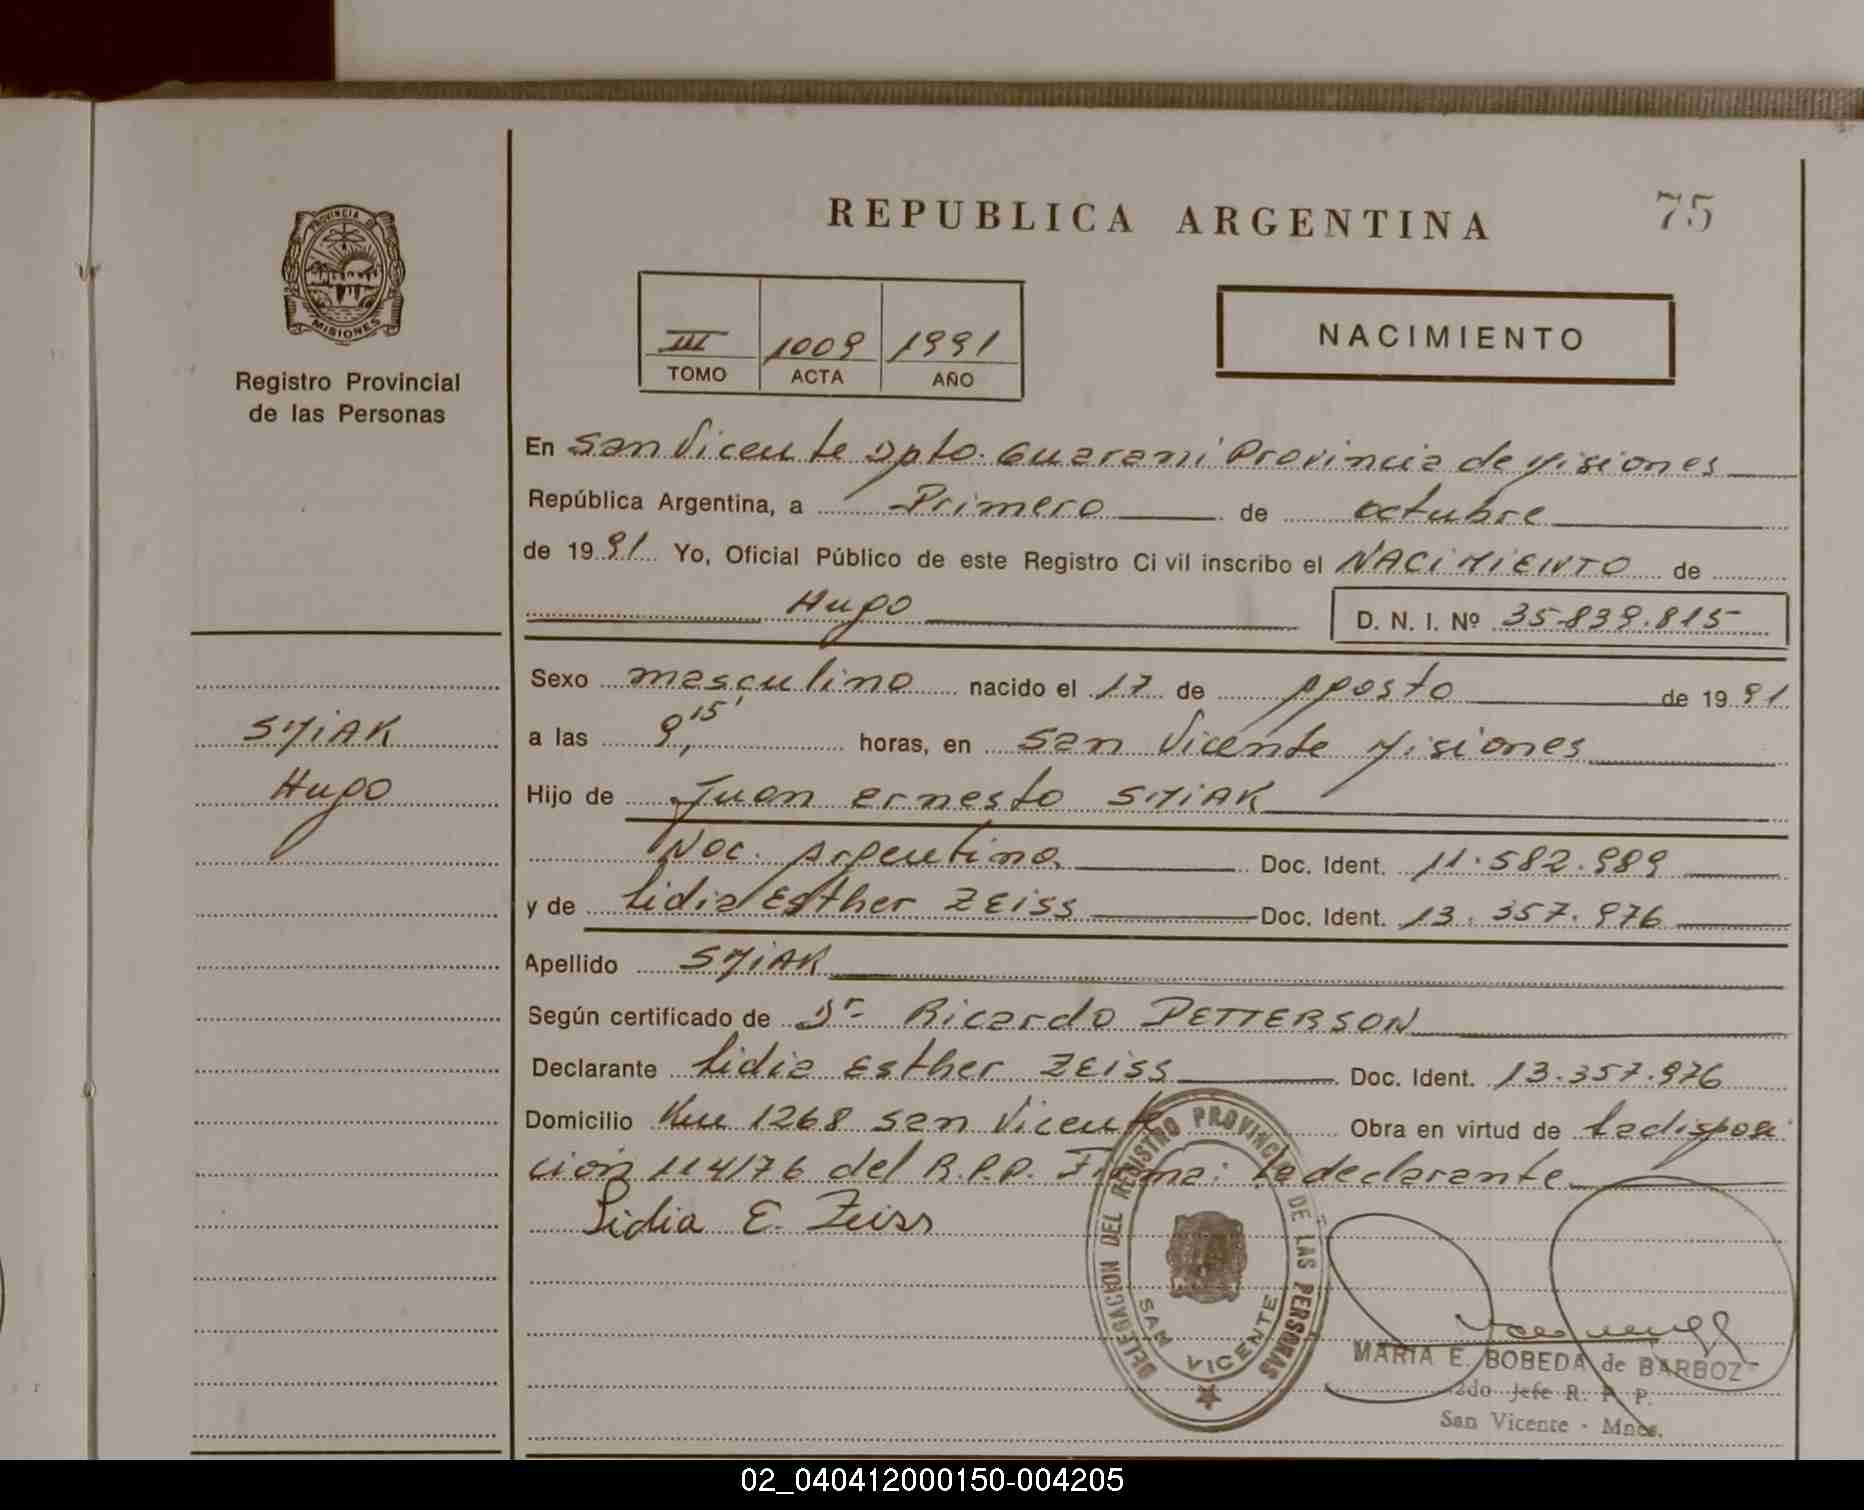 REPUBLICA ARGENTINA
75
PROVINCIA DE
MISIONES
Registro Provincial
de las Personas
III 1009 1991
TOMO ACTA AÑO
NACIMIENTO
En San Vicente Dpto. Guarani Provincia de Misiones
República Argentina, a Primero de octubre
de 1991 Yo, Oficial Público de este Registro Ci vil inscribo el NACIMIENTO de
Hugo D. N. I. Nº 35.839.815
Sexo masculino nacido el 17 de Agosto de 1991
SMiAK
a las 9,15' horas, en San Vicente Misiones
Hugo
Hijo de Juan Ernesto SMiAK
Nac. Argentina Doc. Ident. 11.582.989
y de Lidia Esther ZEiss Doc. Ident. 13.357.976
Apellido SMiAK
Según certificado de Dr. Ricardo PETTERSON
Declarante Lidia Esther ZEiss Doc. Ident. 13.357.976
Domicilio Km 1268 San Vicente Obra en virtud de La disposi
ción 114/76 del R.P.P. Firma: La declarante
Lidia E. Zeiss
DELEGACION DEL REGISTRO PROVINCIAL DE LAS PERSONAS
SAN VICENTE
MARIA E. BOBEDA de BARBOZ
2do Jefe R. P. P.
San Vicente - Mnes.
02_040412000150-004205